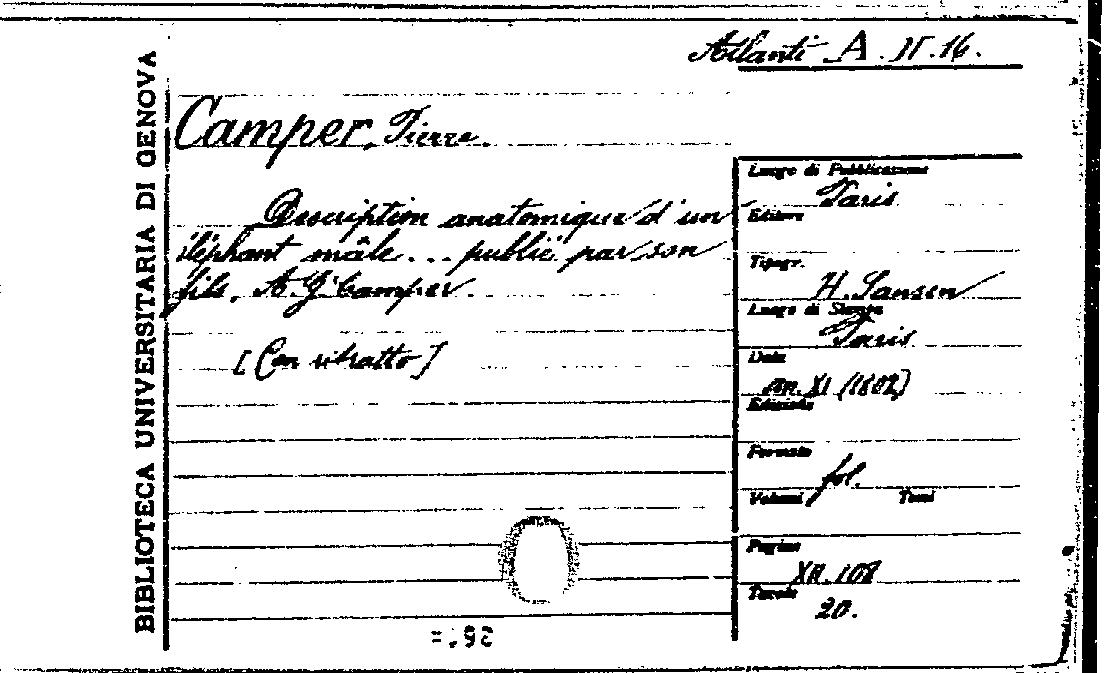 Atlanti A. IV. 16.
BIBLIOTECA UNIVERSITARIA DI GENOVA
Camper, Pierre.
Description anatomique d'un
éléphant mâle... publié par son
fils, A. G. Camper.
[Con ritratto]
Luogo di Pubblicazione
Paris
Editore
Tipogr.
H. Jansen
Luogo di Stampa
Paris
Data
an. XI (1802)
Edizione
Formato
fol.
Volumi Tomi
Pagine
XII. 108
Tavole
20.